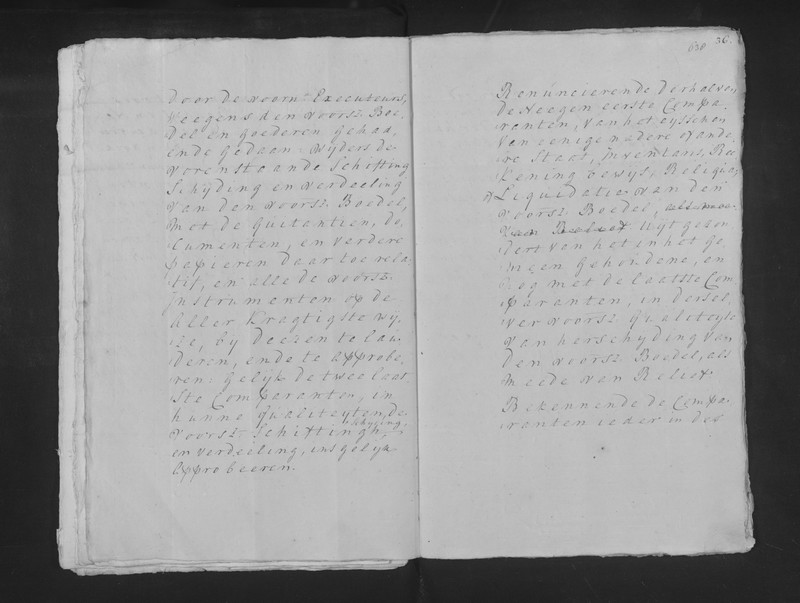 door de voorn: Executeurs,
veegens den voorsz. Boe-
del en goederen gehad,
ende gedaan: wyders de
vorenstaande Schifting
Schyding en verdeeling
van den voorsz. Boedel,
met de quitantien, do-
cumenten, en verdere
papieren daar toe rela-
tif, en alle de voorsz.
Instrumenten op de
aller kragtigste wy-
ze, by deezen te lau-
deren, ende te approbe-
ren: gelyk de twee laat-
ste Comparanten, in
hunne qualiteyten, de
voorsz. Schiftingh, Schyding,
en verdeeling, insgelyk
approbeeren.
638 36.
Renúncierende derhalven
de Neegen eerste Compa-
ranten, van het eysschen
van eenige nadere of ande-
re Staat, Inventaris, Ree-
kening bewys, Reliqua,
Liquidatie van den
voorsz. Boedel,
uytgeson-
dert van het in het ge-
meen gehoudene, en
nog met de laatste Com-
paranten, in derzel-
ver voorsz. qualiteyte
van herschyding van
den voorsz. Boedel, als
meede van Relief.
Bekennende de Compa-
ranten ieder in des